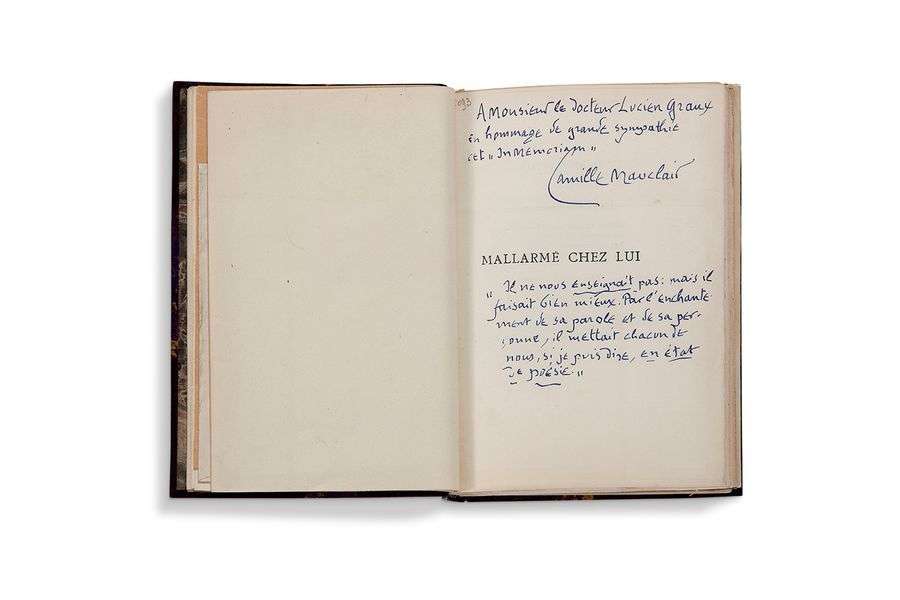 A Monsieur le Docteur Lucien Graux
en hommage de grande sympathie
cet "In Memoriam"
Camille Mauclair
MALLARMÉ CHEZ LUI
"Il ne nous enseignait pas: mais il
faisait bien mieux. Par l'enchante
ment de sa parole et de sa per-
sonne, il mettait chacun de
nous, si je puis dire, en état
de poésie."